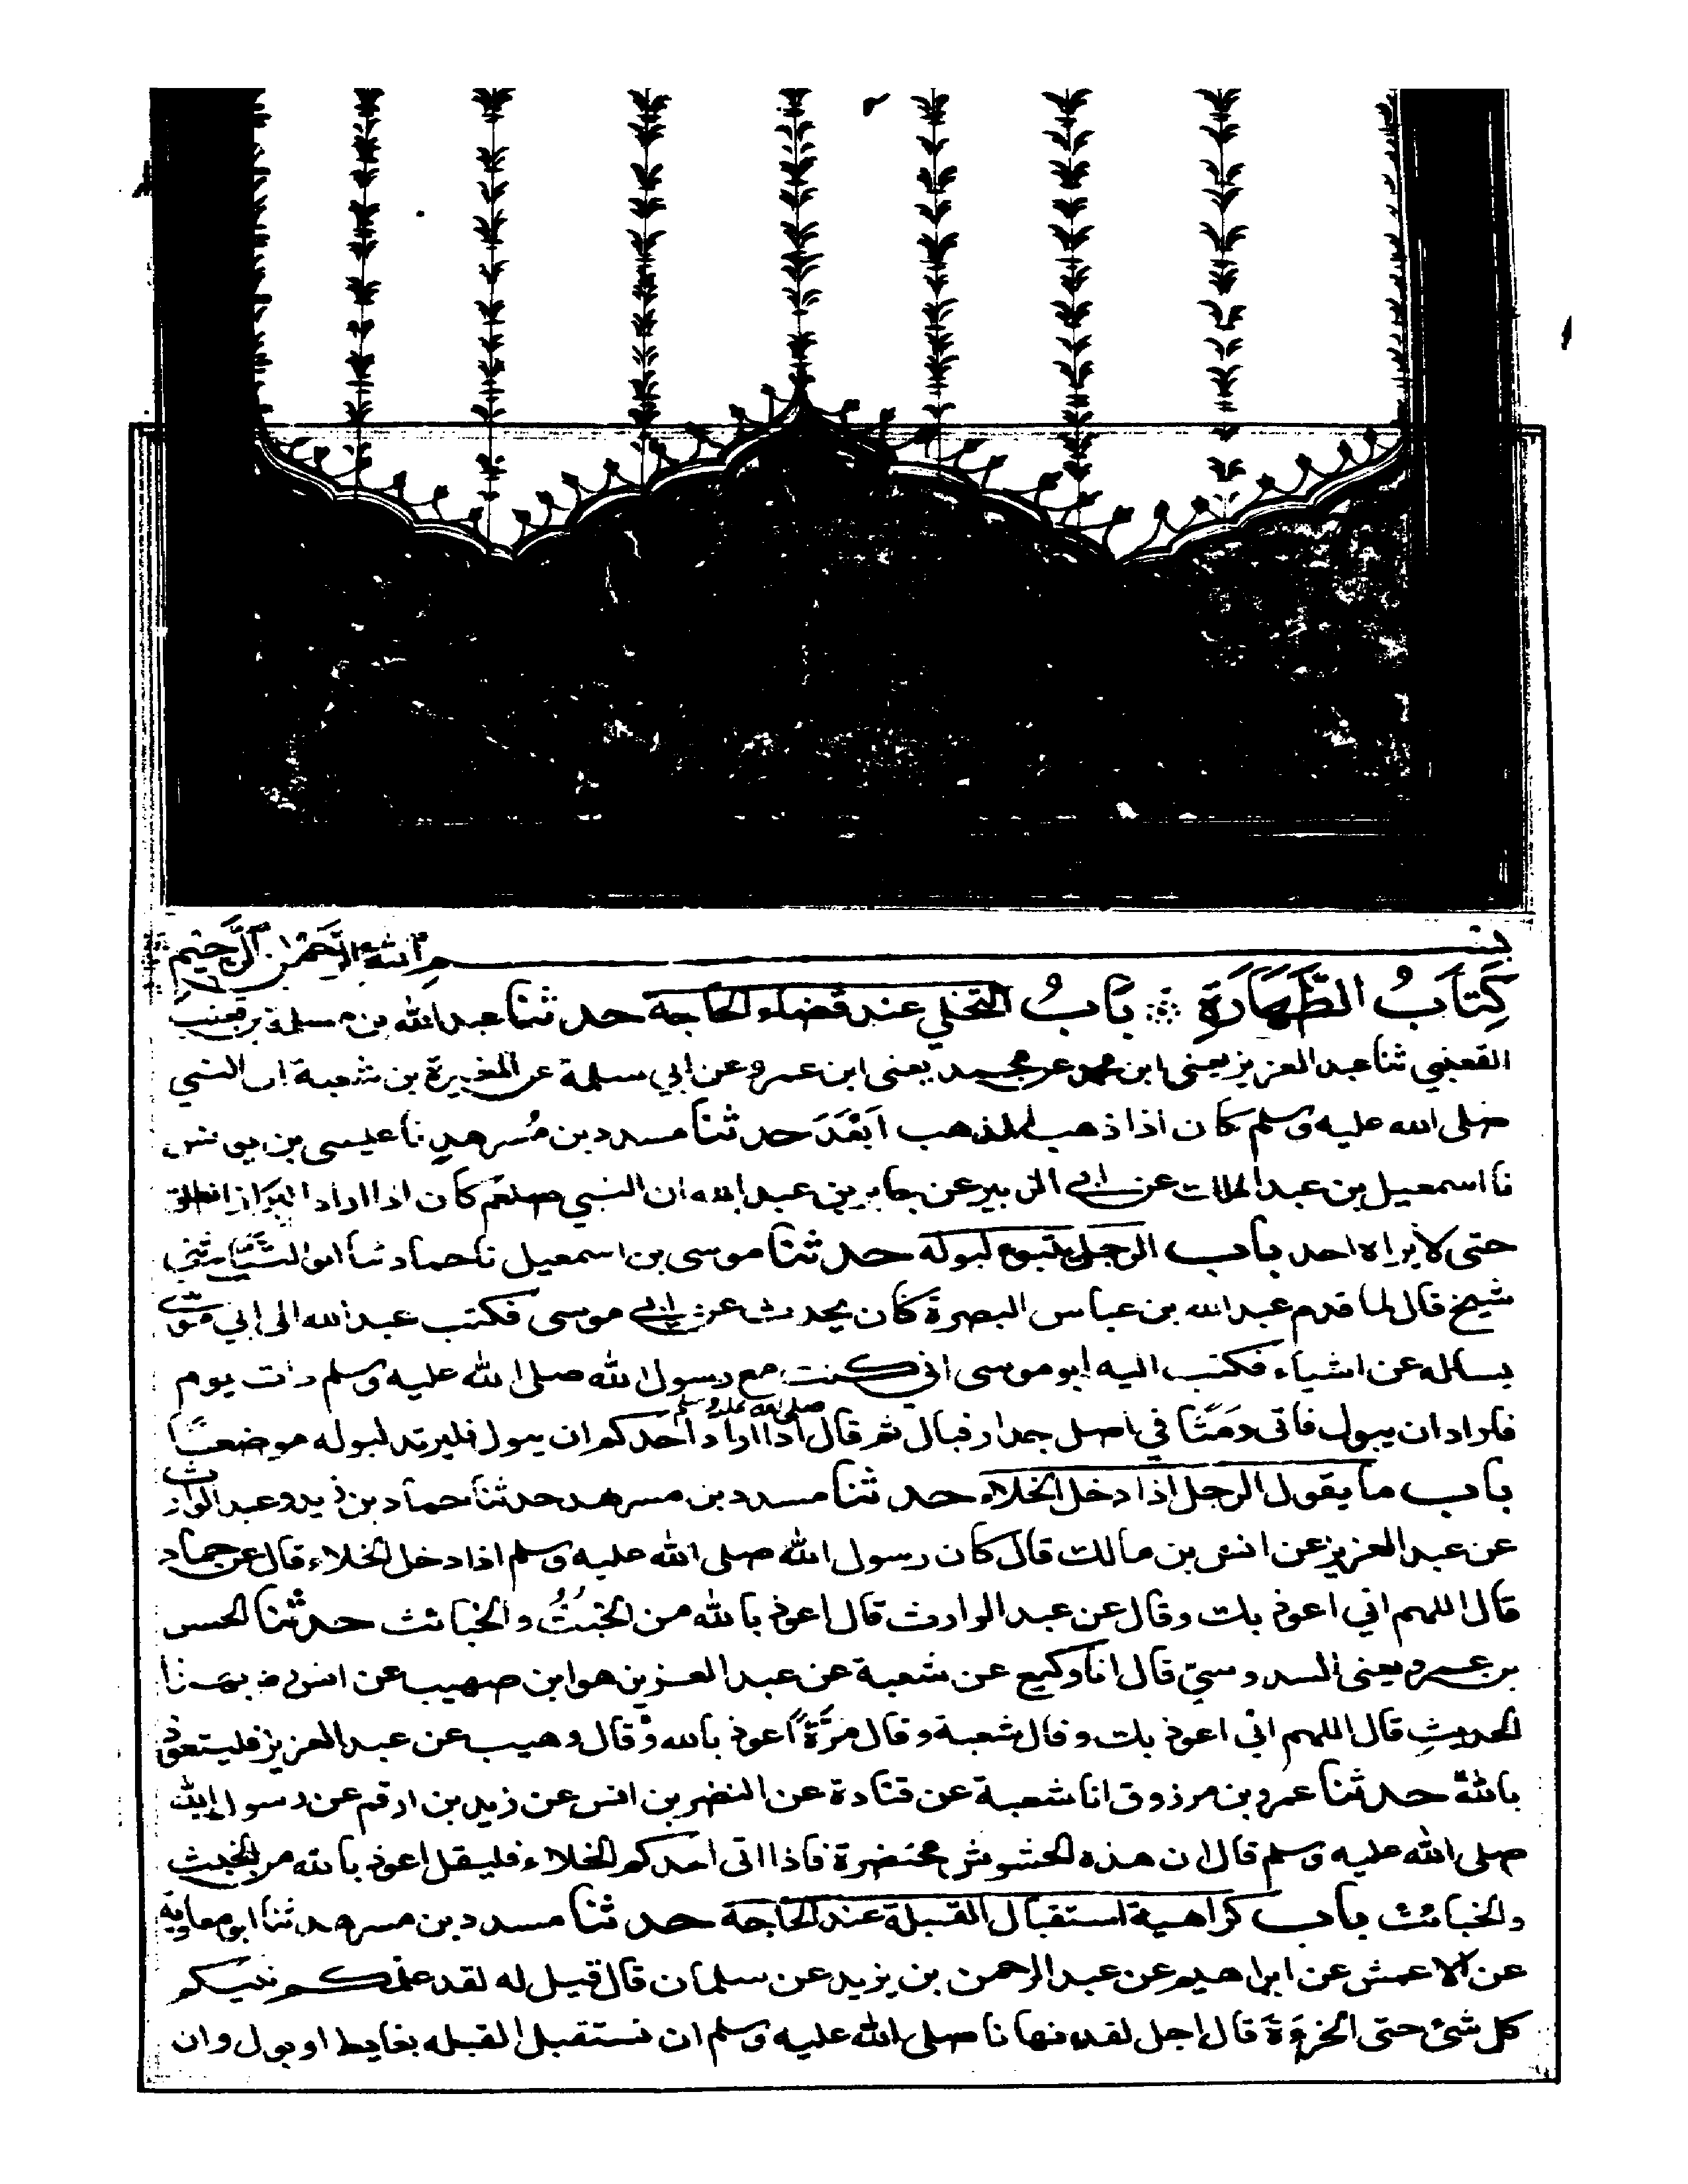 بسم الله الرحمن الرحيم
كِتَابُ الطَّهَارَةِ بَابُ التخلي عند قضاء الحاجة حدثنا عبد الله بن مسلمة بن قعنب
القعنبي ثنا عبد العزيز يعنى ابن محمد عن محمد يعنى ابن عمرو عن ابي سلمة عن المغيرة بن شعبة ان النبي
صلى الله عليه وسلم كان اذا ذهب المذهب اَبْعَدَ حدثنا مسدد بن مُسرهدٍ نا عيسى بن يونس
نا اسمعيل بن عبد الملك عن ابي الزبير عن جابر بن عبد الله ان النبي صلعم كان اذا اراد البَرَاز انطلق
حتى لا يراه احد باب الرجل يتبوع لبوله حدثنا موسى بن اسمعيل نا حماد ثنا ابو التَّيَّاح ثني
شيخ قال لما قدم عبد الله بن عباس البصرة كان يحدث عن ابي موسى فكتب عبد الله الى ابي موسى
يسالله عن اشياء فكتب اليه ابو موسى اني كنت مع رسول الله صلى الله عليه وسلم ذات يوم
فاراد ان يبول فاتى دَمَثًا في اصل جدار فبال ثم قال صلى الله عليه وسلم اذا اراد احدكم ان يبول فليرتد لبوله موضعًا
باب ما يقول الرجل اذا دخل الخلاء حدثنا مسدد بن مسرهد حدثنا حماد بن زيد وعبد الوارث
عن عبد العزيز عن انس بن مالك قال كان رسول الله صلى الله عليه وسلم اذا دخل الخلاء قال عن حماد
قال اللهم اني اعوذ بك وقال عن عبد الوارث قال اعوذ بالله من الخبُثُ والخبائث حدثنا الحسن
بن عمرو يعنى السدوسيّ قال انا وكيع عن شعبة عن عبد العزيز هو ابن صهيب عن انس بهذا
الحديثِ قال اللهم اني اعوذ بك وقال شعبة وقال مَرَّةً اعوذ بالله وقال وهيب عن عبد العزيز فليتعوذ
بالله حدثنا عمرو بن مرزوق انا شعبة عن قتادة عن النضر بن انس عن زيد بن ارقم عن رسول الله
صلى الله عليه وسلم قال ان هذه الحشوش محتضرة فاذا اتى احدكم الخلاء فليقل اعوذ بالله من الخبث
والخبائث باب كراهية استقبال القبلة عند الحاجة حدثنا مسدد بن مسرهد ثنا ابو معاوية
عن الاعمش عن ابراهيم عن عبد الرحمن بن يزيد عن سلمان قال قيل له لقد علمكم نبيكم
كل شئ حتى الخرءَةَ قال اجل لقد نهانا صلى الله عليه وسلم ان نستقبل القبله بغايط او بول وان